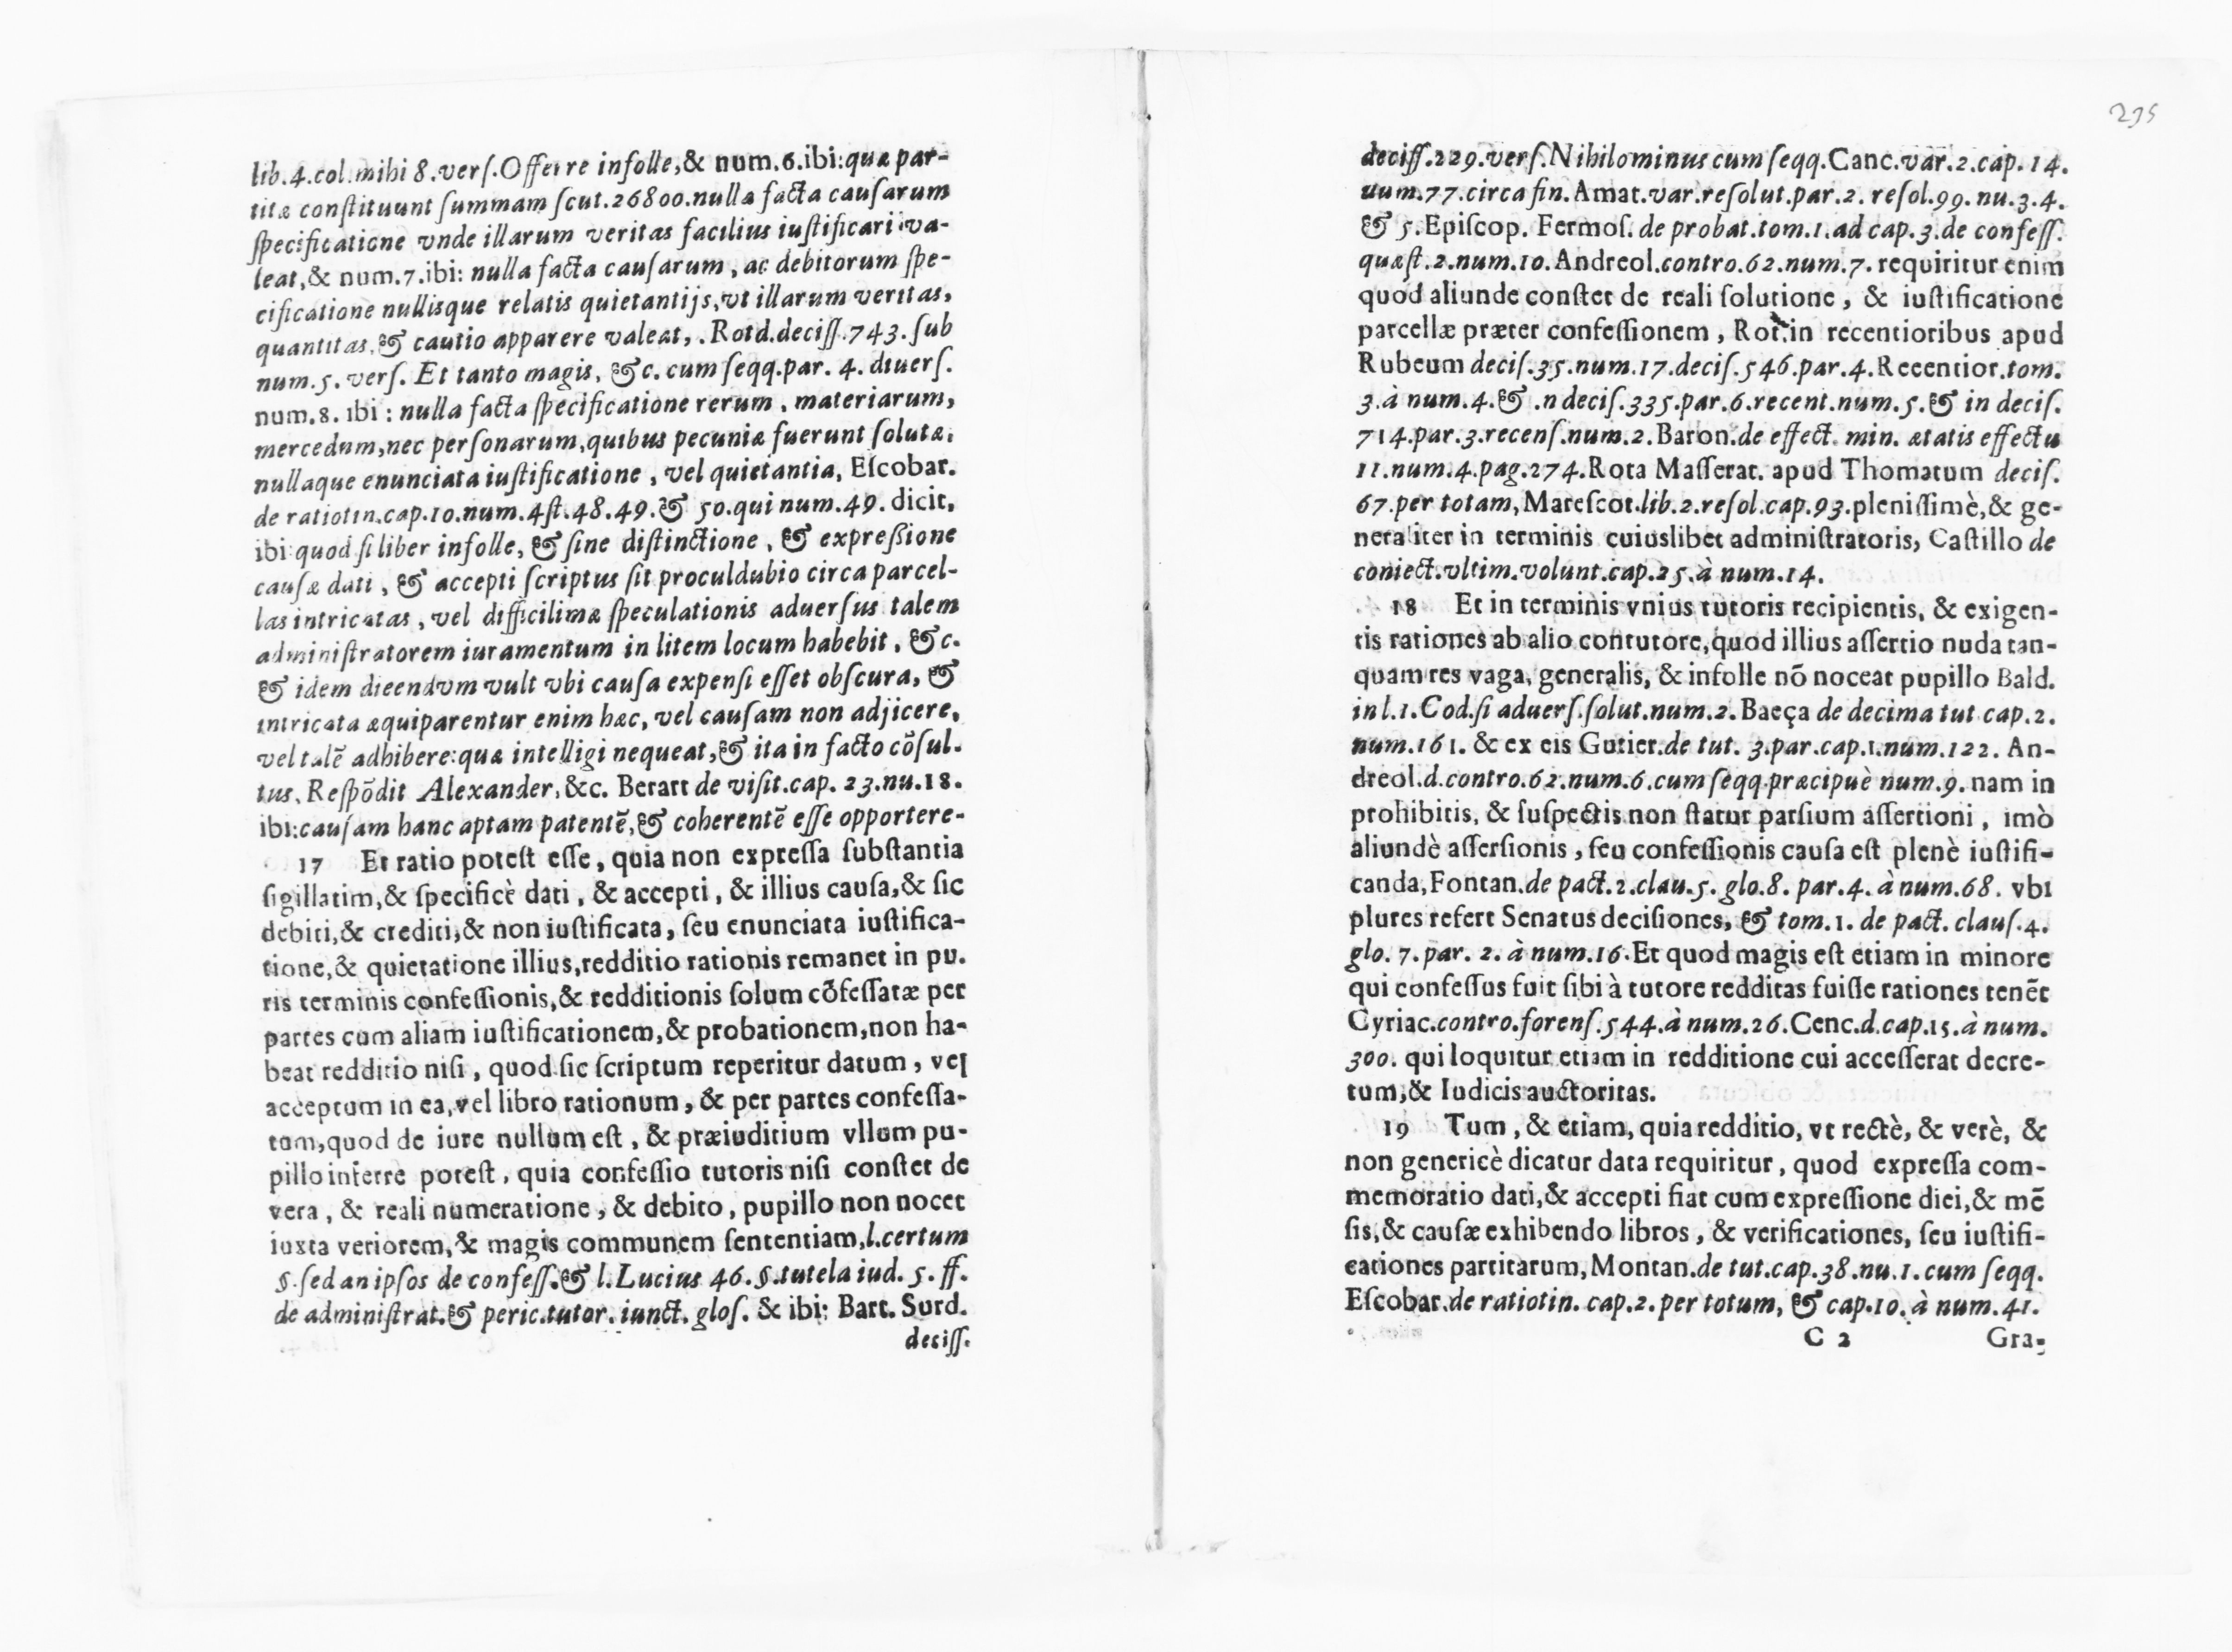 lib.4.col.mihi 8.verſ.Offerre infolle,& num.6.ibi:quæ par-
titæ conſtituunt ſummam ſcut.26800.nulla facta cauſarum
ſpecificatione vnde illarum veritas facilius iuſtificari va-
leat,& num.7.ibi: nulla facta cauſarum, ac debitorum ſpe-
cificatione nullisque relatis quietantijs,vt illarum veritas,
quantitas,& cautio apparere valeat,. Rotd.deciſſ.743.ſub
num.5. verſ. Et tanto magis, &c. cum ſeqq.par. 4. diuerſ.
num.8. ibi: nulla facta ſpecificatione rerum, materiarum,
mercedum,nec perſonarum,quibus pecuniæ fuerunt ſolutæ,
nullaque enunciata iuſtificatione, vel quietantia, Eſcobar.
de ratiotin.cap.10.num.4ſt.48.49.& 50.qui num.49. dicit,
ibi quod ſi liber infolle, & ſine diſtinctione, & expreſsione
cauſæ dati, & accepti ſcriptus ſit proculdubio circa parcel-
las intricatas, vel difficilimæ ſpeculationis aduerſus talem
adminiſtratorem iuramentum in litem locum habebit, &c.
& idem dieendvm vult vbi cauſa expenſi eſſet obſcura, &
intricata æquiparentur enim hæc, vel cauſam non adjicere,
vel talẽ adhibere:quæ intelligi nequeat,& ita in facto cõſul-
tus, Reſpõdit Alexander,&c. Berart de viſit.cap. 23.nu.18.
ibi:cauſam hanc aptam patentẽ,& coherentẽ eſſe opportere-
17 Et ratio poteſt eſſe, quia non expreſſa ſubſtantia
ſigillatim,& ſpecificè dati, & accepti, & illius cauſa,& ſic
debiti,& crediti,& non iuſtificata, ſeu enunciata iuſtifica-
tione,& quietatione illius,redditio rationis remanet in pu.
ris terminis confeſſionis,& redditionis ſolum cõfeſſatæ per
partes cum aliam iuſtificationem,& probationem,non ha-
beat redditio niſi, quod ſic ſcriptum reperitur datum, vel
acceptum in ea,vel libro rationum, & per partes confeſſa-
tum,quod de iure nullum eſt, & præiuditium vllum pu-
pillo inferre poteſt, quia confeſſio tutoris niſi conſtet de
vera, & reali numeratione, & debito, pupillo non nocet
iuxta veriorem,& magis communem ſententiam,l.certum
§.ſed an ipſos de confeſſ.& l.Lucius 46.§.tutela iud. 5. ff.
de adminiſtrat.& peric.tutor. iunct. gloſ. & ibi: Bart. Surd.
deciſſ.
235
deciſſ.229.verſ.Nihilominus cum ſeqq.Canc.var.2.cap.14.
uum.77.circa fin.Amat.var.reſolut.par.2. reſol.99.nu.3.4.
& 5.Epiſcop. Fermoſ. de probat.tom.1.ad cap.3.de confeſſ.
quæſt.2.num.10.Andreol.contro.62.num.7. requiritur enim
quod aliunde conſtet de reali ſolutione, & iuſtificatione
parcellæ præter confeſſionem, Rot.in recentioribus apud
Rubeum deciſ.35.num.17.deciſ.546.par.4.Recentior.tom.
3.à num.4.& .n deciſ.335.par.6.recent.num.5.& in deciſ.
714.par.3.recenſ.num.2.Baron.de effect. min. ætatis effectu
11.num.4.pag.274.Rota Maſſerat. apud Thomatum deciſ.
67.per totam,Mareſcot.lib.2.reſol.cap.93.pleniſſimè,& ge-
neraliter in terminis cuiuslibet adminiſtratoris, Caſtillo de
coniect.vltim.volunt.cap.25.à num.14.
18 Et in terminis vnius tutoris recipientis, & exigen-
tis rationes ab alio contutore,quod illius aſſertio nuda tan-
quam res vaga, generalis, & infolle nõ noceat pupillo Bald.
in l.1.Cod.ſi aduerſ.ſolut.num.2. Baeça de decima tut cap.2.
num.161. & ex eis Gutier.de tut. 3.par.cap.1.num.122. An-
dreol.d.contro.62.num.6.cum ſeqq.præcipuè num.9. nam in
prohibitis, & ſuſpectis non ſtatur parſium aſſertioni, imò
aliundè aſſerſionis, ſeu confeſſionis cauſa eſt plenè iuſtifi-
canda,Fontan.de pact.2.clau.5. glo.8. par.4. à num.68. vbi
plures refert Senatus deciſiones, & tom.1. de pact. clauſ.4.
glo. 7. par. 2. à num.16.Et quod magis eſt etiam in minore
qui confeſſus fuit ſibi à tutore redditas fuiſſe rationes tenẽt
Cyriac.contro.forenſ.544.à num.26.Cenc.d.cap.15.à num.
300. qui loquitur etiam in redditione cui acceſſerat decre-
tum,& Iudicis auctoritas.
19 Tum, & etiam, quia redditio, vt rectè, & verè, &
non genericè dicatur data requiritur, quod expreſſa com-
memoratio dati,& accepti fiat cum expreſſione diei,& mẽ
ſis,& cauſæ exhibendo libros, & verificationes, ſeu iuſtifi-
eationes partitarum,Montan.de tut.cap.38.nu.1.cum ſeqq.
Eſcobar.de ratiotin. cap.2.per totum, & cap.10. à num.41.
C 2 Gra-